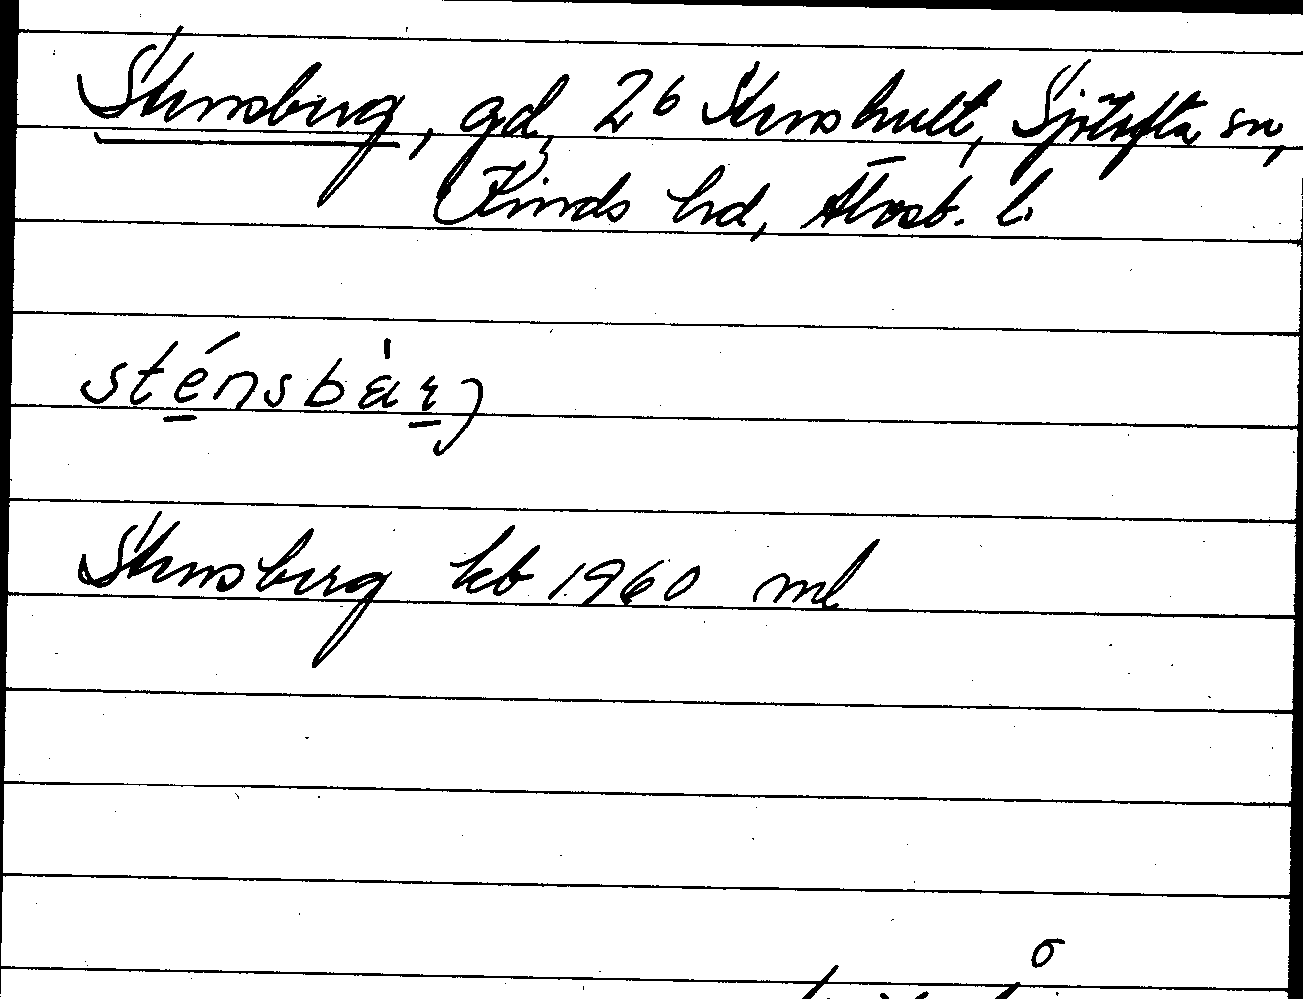 Stensberg, gd, 2⁶ Stenshult, Sjötofta sn,
Kinds hd, Älvsb. l.
sténsbàr̤j
Stensberg kb 1960 ml